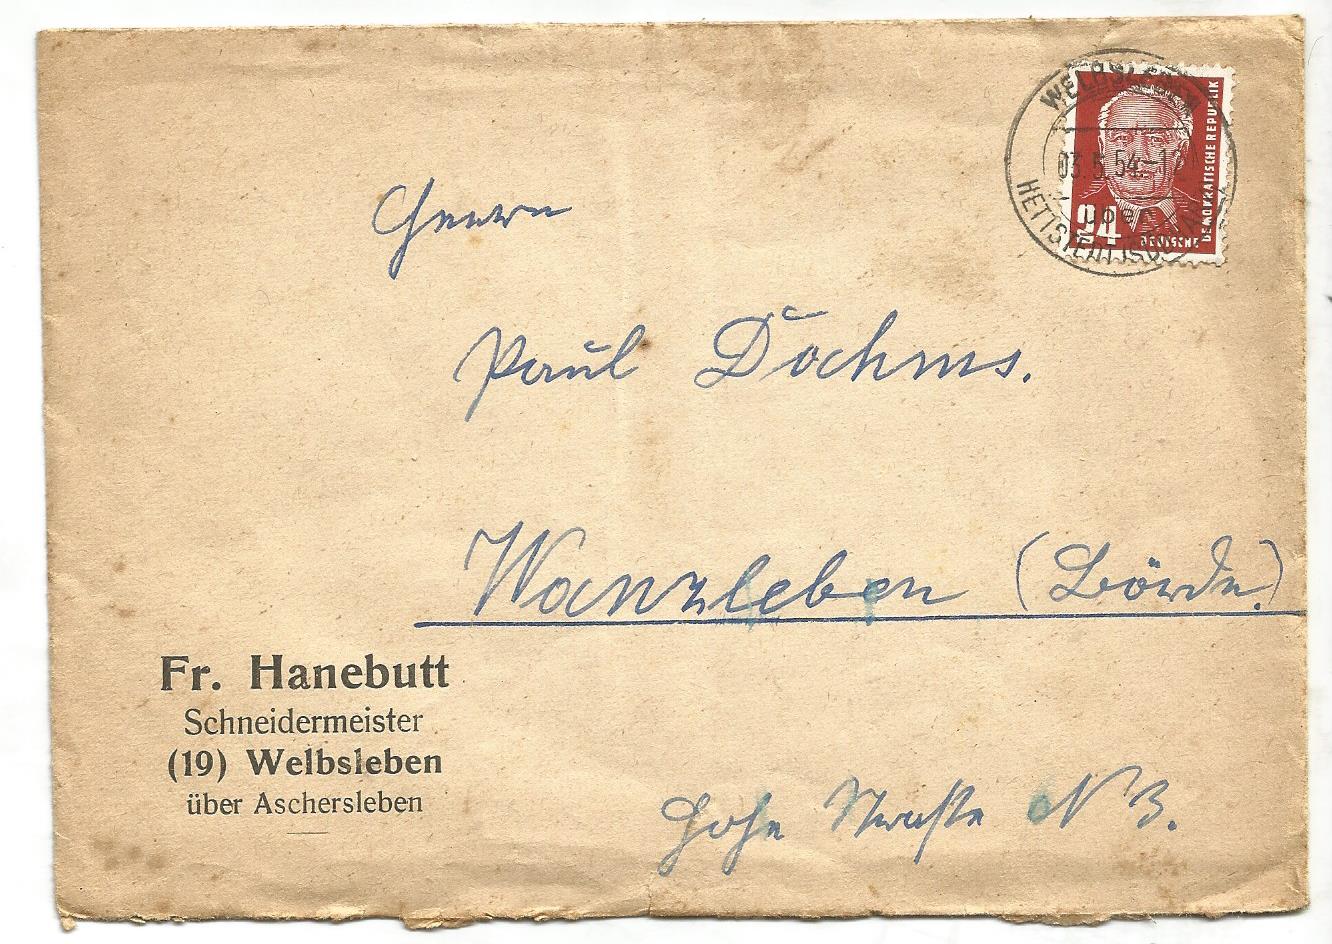 WELBSLEBEN
03.5.54.-12
HETTSTEDT
24
DEUTSCHE DEMOKRATISCHE REPUBLIK
Herrn
Paul Dochms.
Wanzleben (Börde.)
Hohe Straße N 3.
Fr. Hanebutt
Schneidermeister
(19) Welbsleben
über Aschersleben